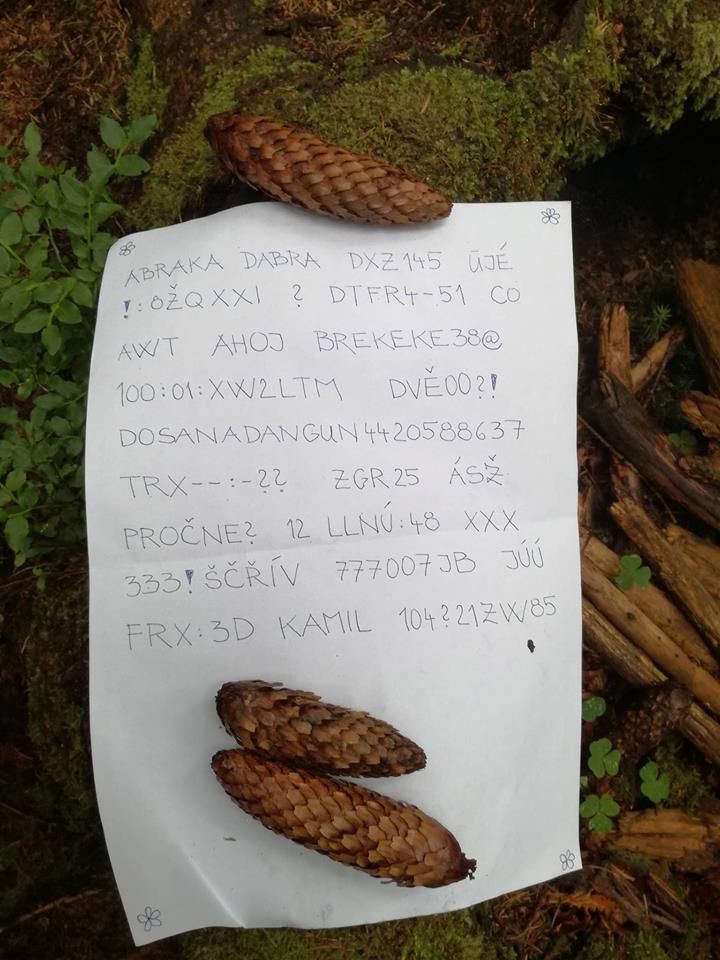 ABRAKA DABRA DXZ145 ŪJÉ
!:8ŽQXXI ? DTFR4-51 CO
AWT AHOJ BREKEKE38@
100:01:XW2LTM DVĚ00?!
DOSANADANGUN4420588637
TRX--:-?? ZGR25 ÁSŽ
PROČNE? 12 LLNÚ:48 XXX
333!ŠČŘÍV 777007JB JÚÚ
FRX:3D KAMIL 104?21ZW85